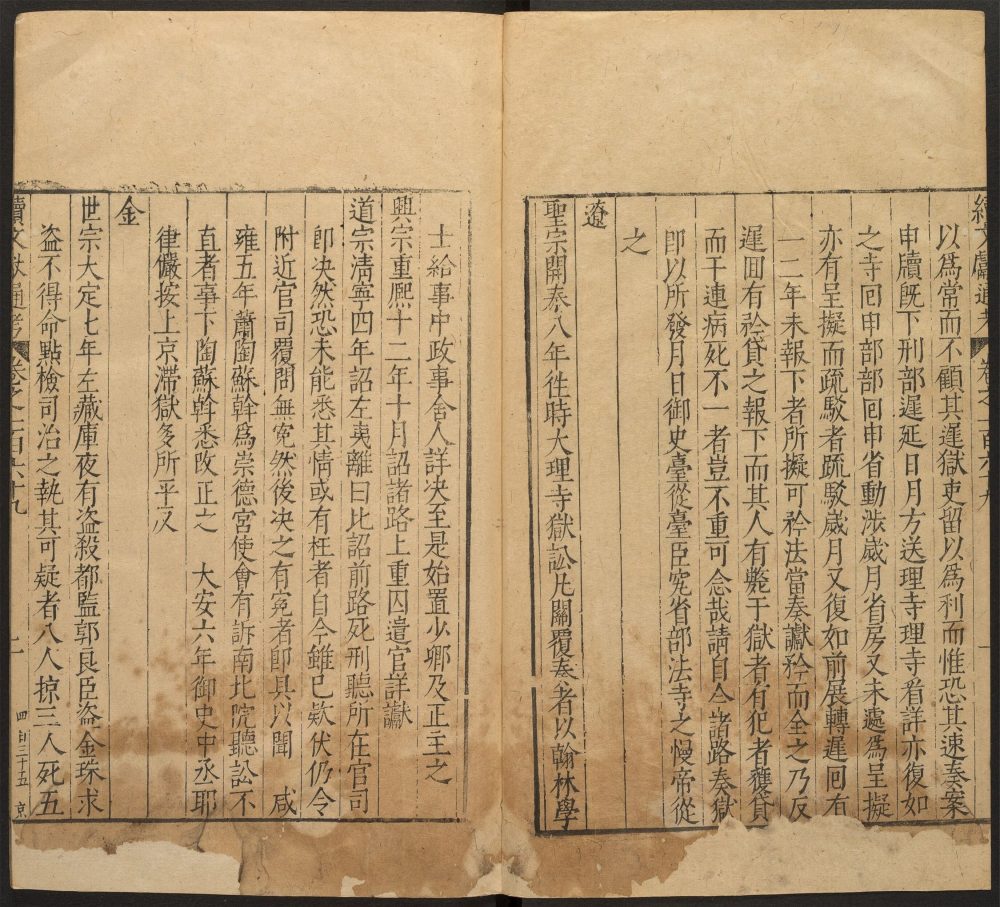 續文獻通考 卷之一百六十九 一
以爲常而不顧其遲獄吏留以爲利而惟恐其速奏案
申牘旣下刑部遲延日月方送理寺理寺看詳亦復如
之寺回申部部回申省動涉歲月省房又未遽爲呈擬
亦有呈擬而疏駁者疏駁歲月又復如前展轉遲回有
一二年未報下者所擬可矜法當奏讞矜而全之乃反
遲回有矜貸之報下而其人有斃于獄者有犯者獲貸
而干連病死不一者豈不重可念哉請自今諸路奏獄
卽以所發月日御史臺從臺臣究省部法寺之慢帝從
之
遼
聖宗開泰八年徃時大理寺獄訟凡關覆奏者以翰林學
士給事中政事舍人詳決至是始置少卿及正主之
興宗重熈十二年十月詔諸路上重囚遣官詳讞
道宗淸寧四年詔左夷離曰比詔前路死刑聽所在官司
卽决然恐未能悉其情或有枉者自今雖已欵伏仍令
附近官司覆問無寃然後决之有寃者卽具以聞 咸
雍五年蕭陶蘇斡爲崇德宮使會有訴南北院聽訟不
直者事下陶蘇斡悉改正之 大安六年御史中丞耶
律儼按上京滯獄多所平反
金
世宗大定七年左藏庫夜有盗殺都監郭良臣盗金珠求
盗不得命點檢司治之執其可疑者八人掠三人死五
續文獻通考 卷之一百六十九 二 四百三十五 京